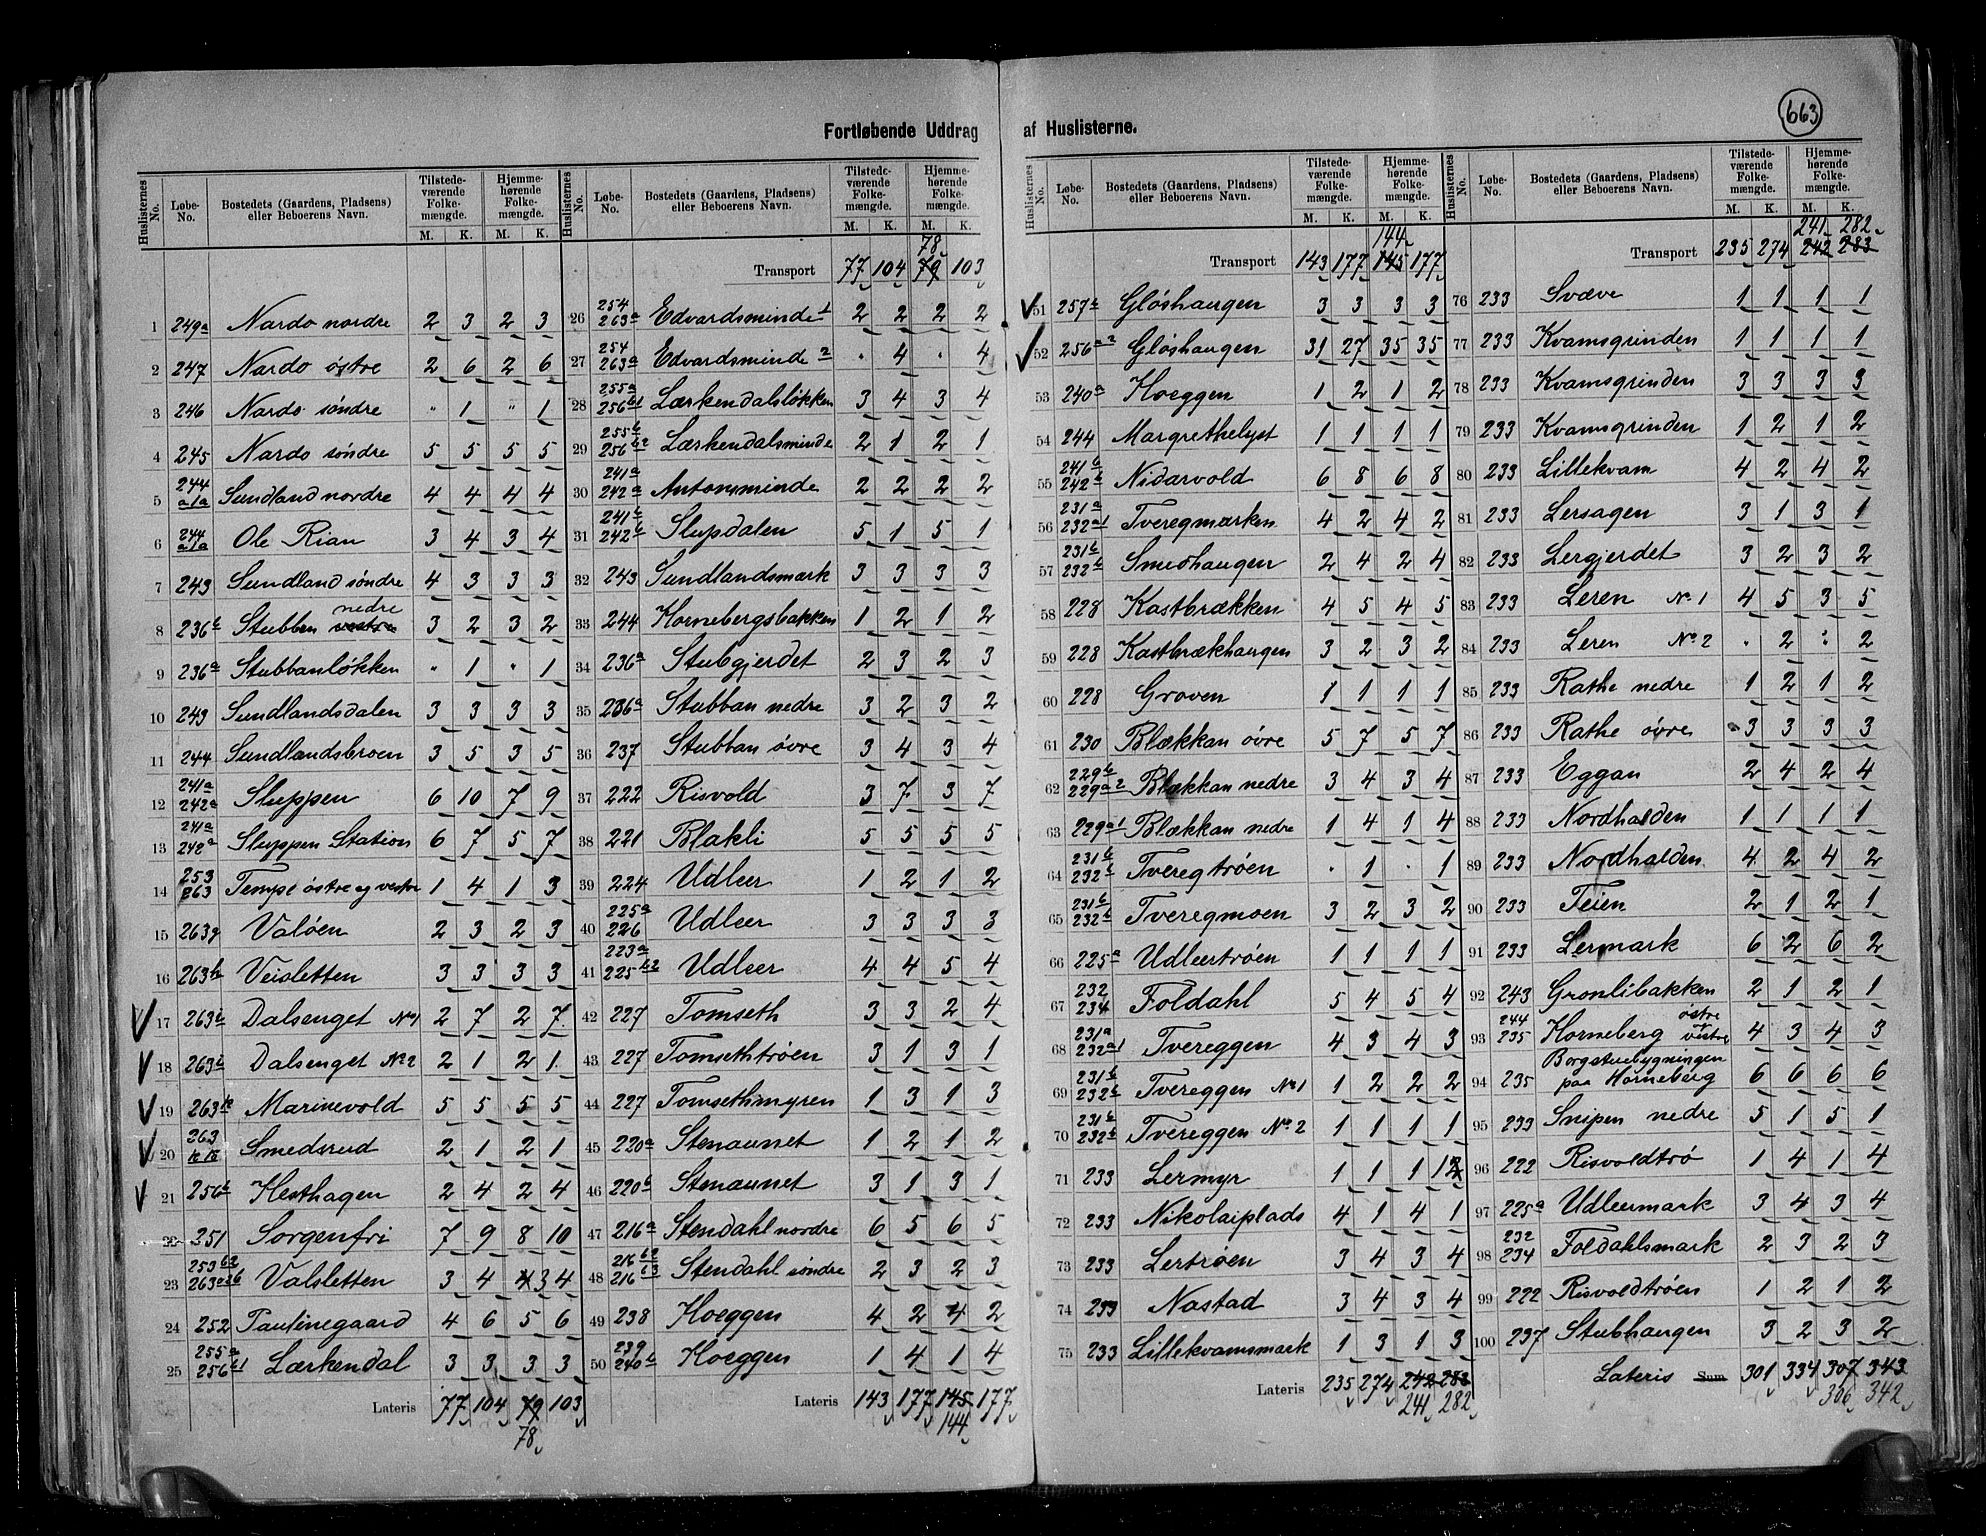 663
Fortløbende Uddrag af Huslisterne.
Huslisternes No. Løbe-No. Bostedets (Gaardens, Pladsens) eller Beboerens Navn. Tilstede-værende Folke-mængde. M. K. Hjemme-hørende Folke-mængde. M. K.
1 249a Nardo nordre 2 3 2 3
2 247 Nardo østre 2 6 2 6
3 246 Nardo søndre " 1 " 1
4 245 Nardo søndre 5 5 5 5
5 244 a1a Sundland nordre 4 4 4 4
6 244 a1a Ole Rian 3 4 3 4
7 243 Sundland søndre 4 3 3 3
8 236b Stubban vestre nedre 3 2 3 2
9 236a Stubbanløkken " 1 " 1
10 243 Sundlandsdalen 3 3 3 3
11 244 Sundlandsbroen 3 5 3 5
12 241a 242a Sluppen 6 10 7 9
13 241a 242a Sluppen Station 6 7 5 7
14 253 263 Tempe østre og vestre 1 4 1 3
15 263g Valøen 2 3 2 3
16 263h Veisletten 3 3 3 3
17 263b Dalsenget No 1 2 7 2 7
18 263b Dalsenget No 2 2 1 2 1
19 263k Marinevold 5 5 5 5
20 263 Smedsrud 2 1 2 1
21 256b Hesthagen 2 4 2 4
22 251 Sorgenfri 7 9 8 10
23 253b2 263 Valsletten 3 4 4 3 4
24 252 Paulinegaard 4 6 5 6
25 255a 256b1 Lærkendal 3 3 3 3
Lateris 77 104 79 103
78
Huslisternes No. Løbe-No. Bostedets (Gaardens, Pladsens) eller Beboerens Navn. Tilstede-værende Folke-mængde. M. K. Hjemme-hørende Folke-mængde. M. K.
78
Transport 77 104 79 103
26 254 263a Edvardsminde 1 2 2 2 2
27 254 263a Edvardsminde 2 " 4 " 4
28 255a 256b1 Lærkendalsløkken 3 4 3 4
29 255b 256b2 Lærkendalsminde 2 1 2 1
30 241a 242a Antonsminde 2 2 2 2
31 241b 242b Slupdalen 5 1 5 1
32 243 Sundlandsmark 3 3 3 3
33 244 Hornebergsbakken 1 2 1 2
34 236a Stubgjerdet 2 3 2 3
35 236a Stubban nedre 3 2 3 2
36 237 Stubban øvre 3 4 3 4
37 222 Risvold 3 7 3 7
38 221 Blakli 5 5 5 5
39 224 Udleer 1 2 1 2
40 225a 226 Udleer 3 3 3 3
41 223a 225b2 Udleer 4 4 5 4
42 227 Tomseth 3 3 2 4
43 227 Tomsethtrøen 3 1 3 1
44 227 Tomsethmyren 1 3 1 3
45 220a Stenaunet 1 2 1 2
46 220b Stenaunet 3 1 3 1
47 216a Stendahl nordre 6 5 6 5
48 216b2 216b3 Stendahl søndre 2 3 2 3
49 238 Hoeggen 4 2 4 2
50 239 240b Hoeggen 1 4 1 4
Lateris 143 177 145 177
144
Huslisternes No. Løbe-No. Bostedets (Gaardens, Pladsens) eller Beboerens Navn. Tilstede-værende Folke-mængde. M. K. Hjemme-hørende Folke-mængde. M. K.
144
Transport 143 177 145 177
51 257b Gløshaugen 3 3 3 3
52 256a2 Gløshaugen 31 27 35 35
53 240a Hoeggen 1 2 1 2
54 244 Margrethelyst 1 1 1 1
55 241b 242b Nidarvold 6 8 6 8
56 231a 232a1 Tveregmarken 4 2 4 2
57 231b 232b Smedhaugen 2 4 2 4
58 228 Kastbrækken 4 5 4 5
59 228 Kastbrækhaugen 3 2 3 2
60 228 Groven 1 1 1 1
61 230 Blækkan øvre 5 7 5 7
62 229b 229a2 Blækkan nedre 3 4 3 4
63 229a1 Blækkan nedre 1 4 1 4
64 231b 232b Tveregtrøen " 1 " 1
65 231b 232b Tveregmoen 3 2 3 2
66 225a Udleertrøen 1 1 1 1
67 232 234 Foldahl 5 4 5 4
68 231a 232a1 Tvereggen 4 3 4 3
69 231b 232b Tvereggen No 1 1 2 2 2
70 231b 232b Tvereggen No 2 1 1 1 1
71 233 Lermyr 1 1 1 1 2
72 233 Nikolaiplads 4 1 4 1
73 233 Lertrøen 3 4 3 4
74 233 Nastad 3 4 3 4
75 233 Lillekvamsmark 1 3 1 3
Lateris 235 274 242 283
241 282
Huslisternes No. Løbe-No. Bostedets (Gaardens, Pladsens) eller Beboerens Navn. Tilstede-værende Folke-mængde. M. K. Hjemme-hørende Folke-mængde. M. K.
241 282
Transport 235 274 242 283
76 233 Svæve 1 1 1 1
77 233 Kvamsgrinden 1 1 1 1
78 233 Kvamsgrinden 3 3 3 3
79 233 Kvamsgrinden 1 2 1 2
80 233 Lillekvam 4 2 4 2
81 233 Lersagen 3 1 3 1
82 233 Lergjerdet 3 2 3 2
83 233 Leren No 1 4 5 3 5
84 233 Leren No 2 " 2 " 2
85 233 Rathe nedre 1 2 1 2
86 233 Rathe øvre 3 3 3 3
87 233 Eggan 2 4 2 4
88 233 Nordhalden 1 1 1 1
89 233 Nordhalden 4 2 4 2
90 233 Teien 2 1 2 1
91 233 Lermark 6 2 6 2
92 243 Gronlibakken 2 1 2 1
93 244 235 Horneberg østre og vestre 4 3 4 3
94 235 Borgstuebygningen paa Horneberg 6 6 6 6
95 233 Snipen nedre 5 1 5 1
96 222 Risvoldtrø 1 4 1 4
97 225a Udleermark 3 4 3 4
98 232 234 Foldahlsmark 2 3 2 3
99 222 Risvoldtrøen 1 2 1 2
100 237 Stubhaugen 3 2 3 2
Lateris Sum 301 334 307 343
306 342